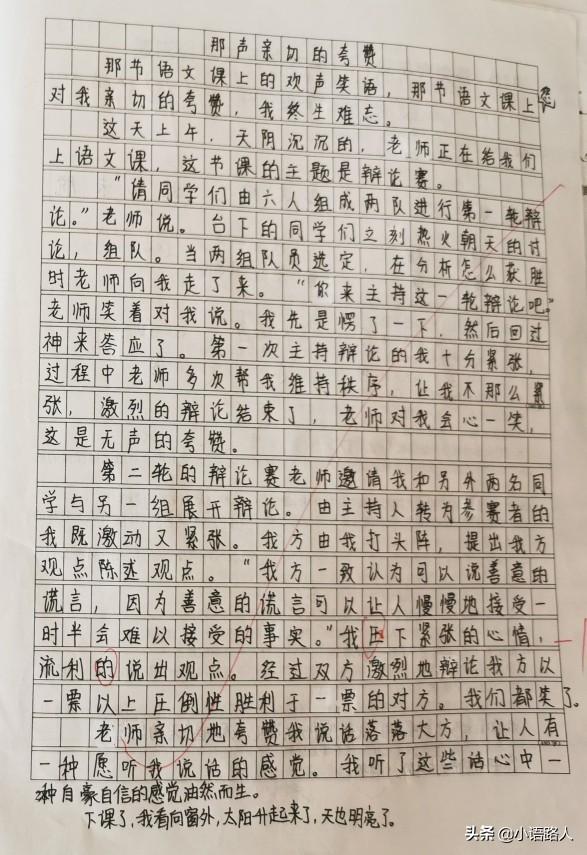 那声亲切的夸赞
那节语文课上的欢声笑语，那节语文课上您
对我亲切的夸赞，我终生难忘。
这天上午，天阴沉沉的，老师正在给我们
上语文课，这节课的主题是辩论赛。
“请同学们由六人组成两队进行第一轮辩
论。”老师说。台下的同学们立刻热火朝天的讨
论，组队。当两组队员选定，在分析怎么获胜
时老师向我走了来。“你来主持这一轮辩论吧。”
老师笑着对我说。我先是愣了一下，然后回过
神来答应了。第一次主持辩论的我十分紧张，
过程中老师多次帮我维持秩序，让我不那么紧
张，激烈的辩论结束了，老师对我会心一笑，
这是无声的夸赞。
第二轮的辩论赛老师邀请我和另外两名同
学与另一组展开辩论。由主持人转为参赛者的
我既激动又紧张。我方由我打头阵，提出我方
观点陈述观点。“我方一致认为可以说善意的
谎言，因为善意的谎言可以让人慢慢地接受一
时半会难以接受的事实。”我压下紧张的心情，
流利的说出观点。经过双方激烈地辩论我方以
一票以上压倒性胜利于一票的对方。我们都笑了。
老师亲切地夸赞我说话落落大方，让人有
一种愿听我说话的感觉。我听了这些话心中一
种自豪自信的感觉油然而生。
下课了，我看向窗外，太阳升起来了，天也明亮了。
头条 @小语路人